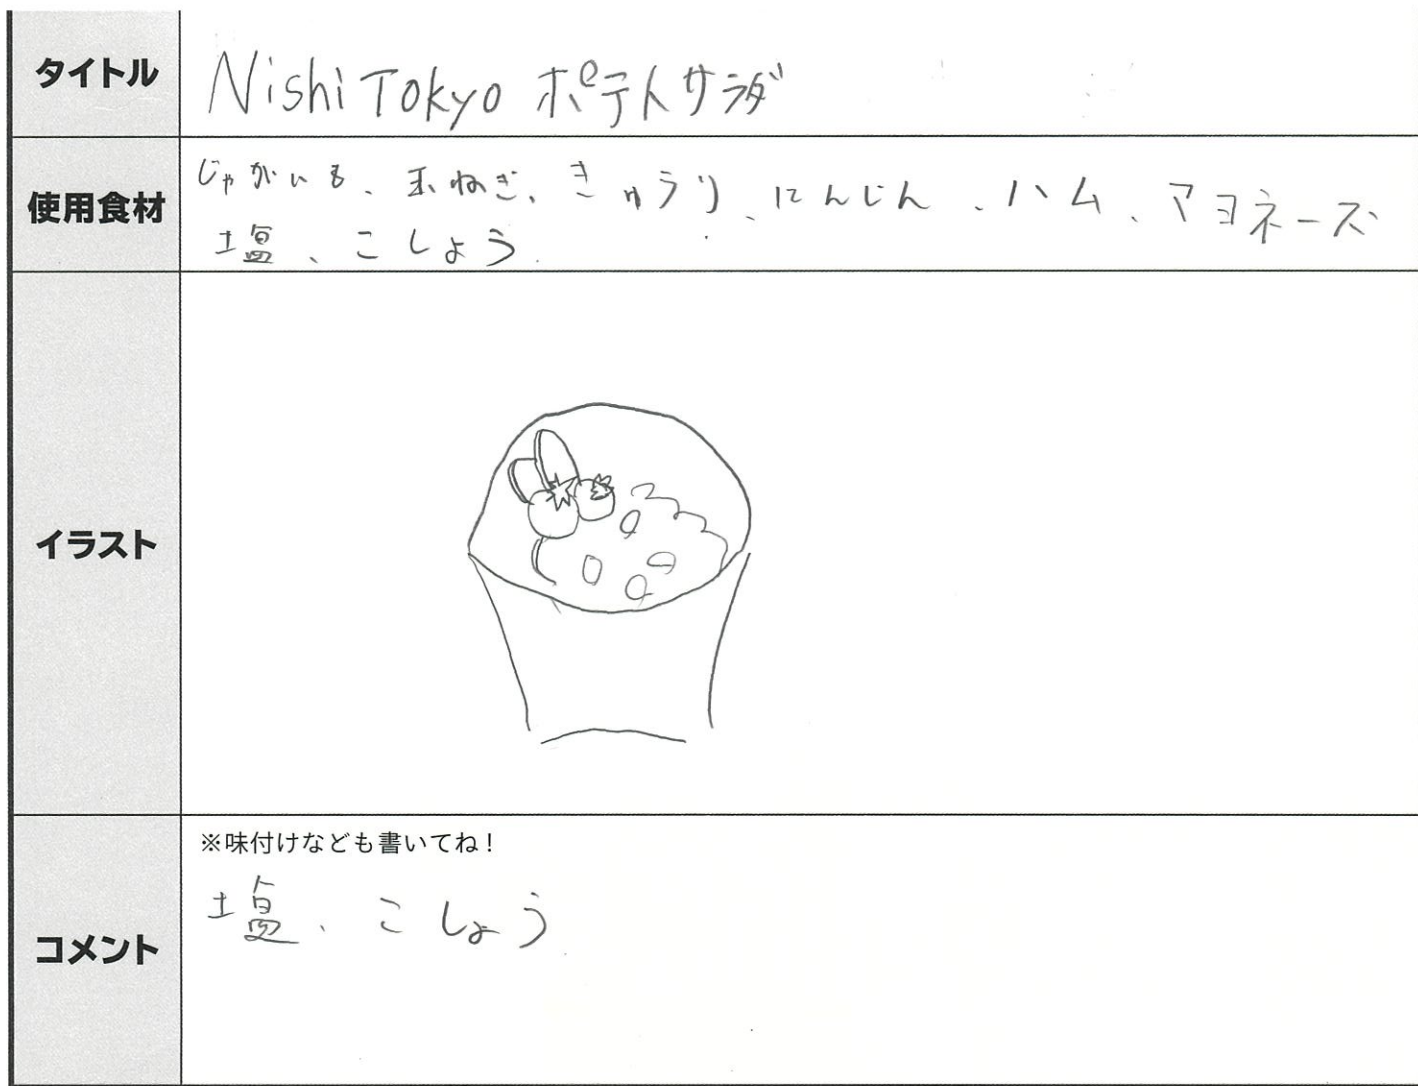 タイトル
Nishi Tokyo ポテトサラダ
使用食材
じゃがいも、玉ねぎ、きゅうり、にんじん、ハム、マヨネーズ
塩、こしょう
イラスト
コメント
※味付けなども書いてね！
塩、こしょう